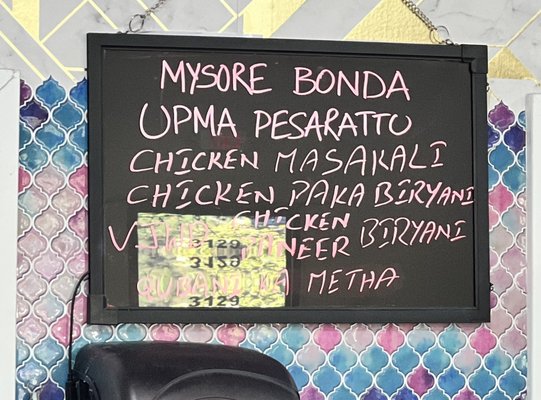 MYSORE BONDA
UPMA PESARATTU
CHICKEN MASAKALI
CHICKEN PAKA BIRYANI
CHICKEN
PANEER BIRYANI
QUBANI KA METHA
3129
3129
3129